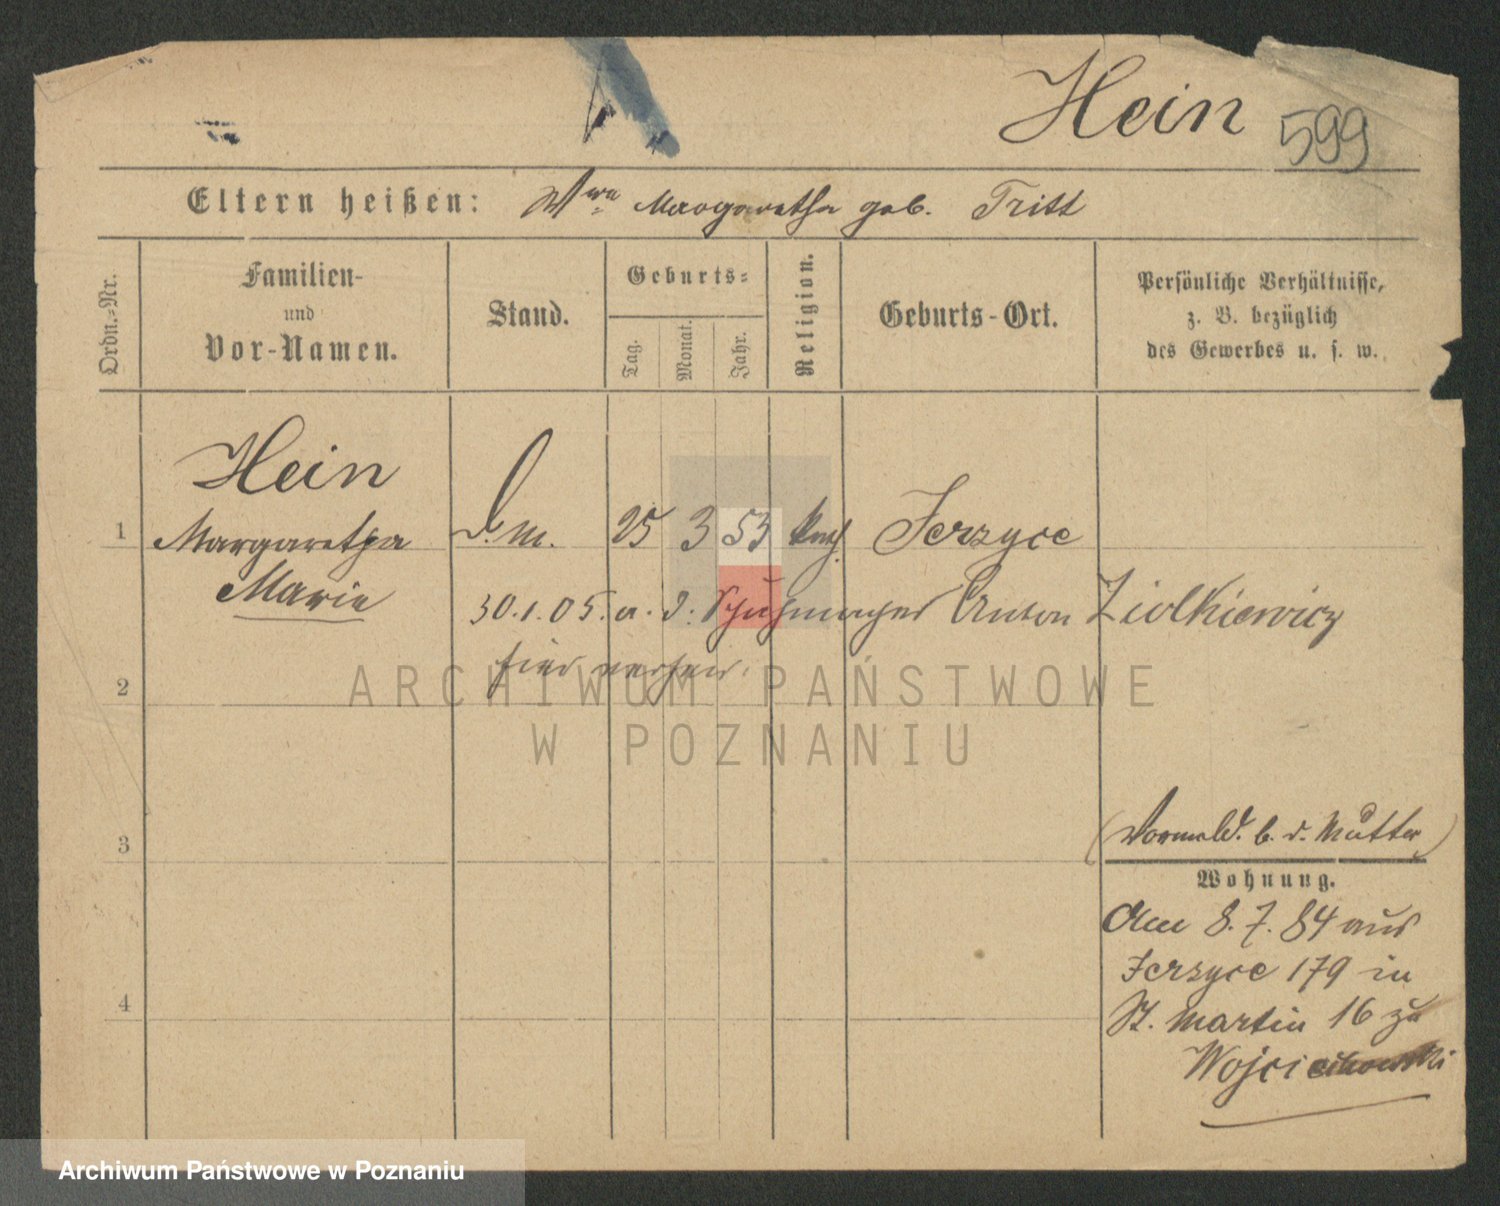 Hein 599
Eltern heißen: Wwe Margaretha geb. Tritt
Ordn.-Nr.
Familien-
und
Vor-Namen.
Stand.
Geburts-
Tag.
Monat.
Jahr.
Religion.
Geburts-Ort.
Persönliche Verhältnisse,
z. B. bezüglich
des Gewerbes u. s. w.
Hein
1 Margaretha 25 3 53 kath. Jerzyce
Marie
30.1.05. a. d. Schuhmacher Anton Ziolkiewicz
hier verheir.
2
3
(Vormeld. b. d. Mutter)
Wohnung.
Am 8. 7. 84 aus
Jerzyce 179 in
St. Martin 16 zu
Wojciechowski
4
ARCHIWUM PAŃSTWOWE
W POZNANIU
Archiwum Państwowe w Poznaniu